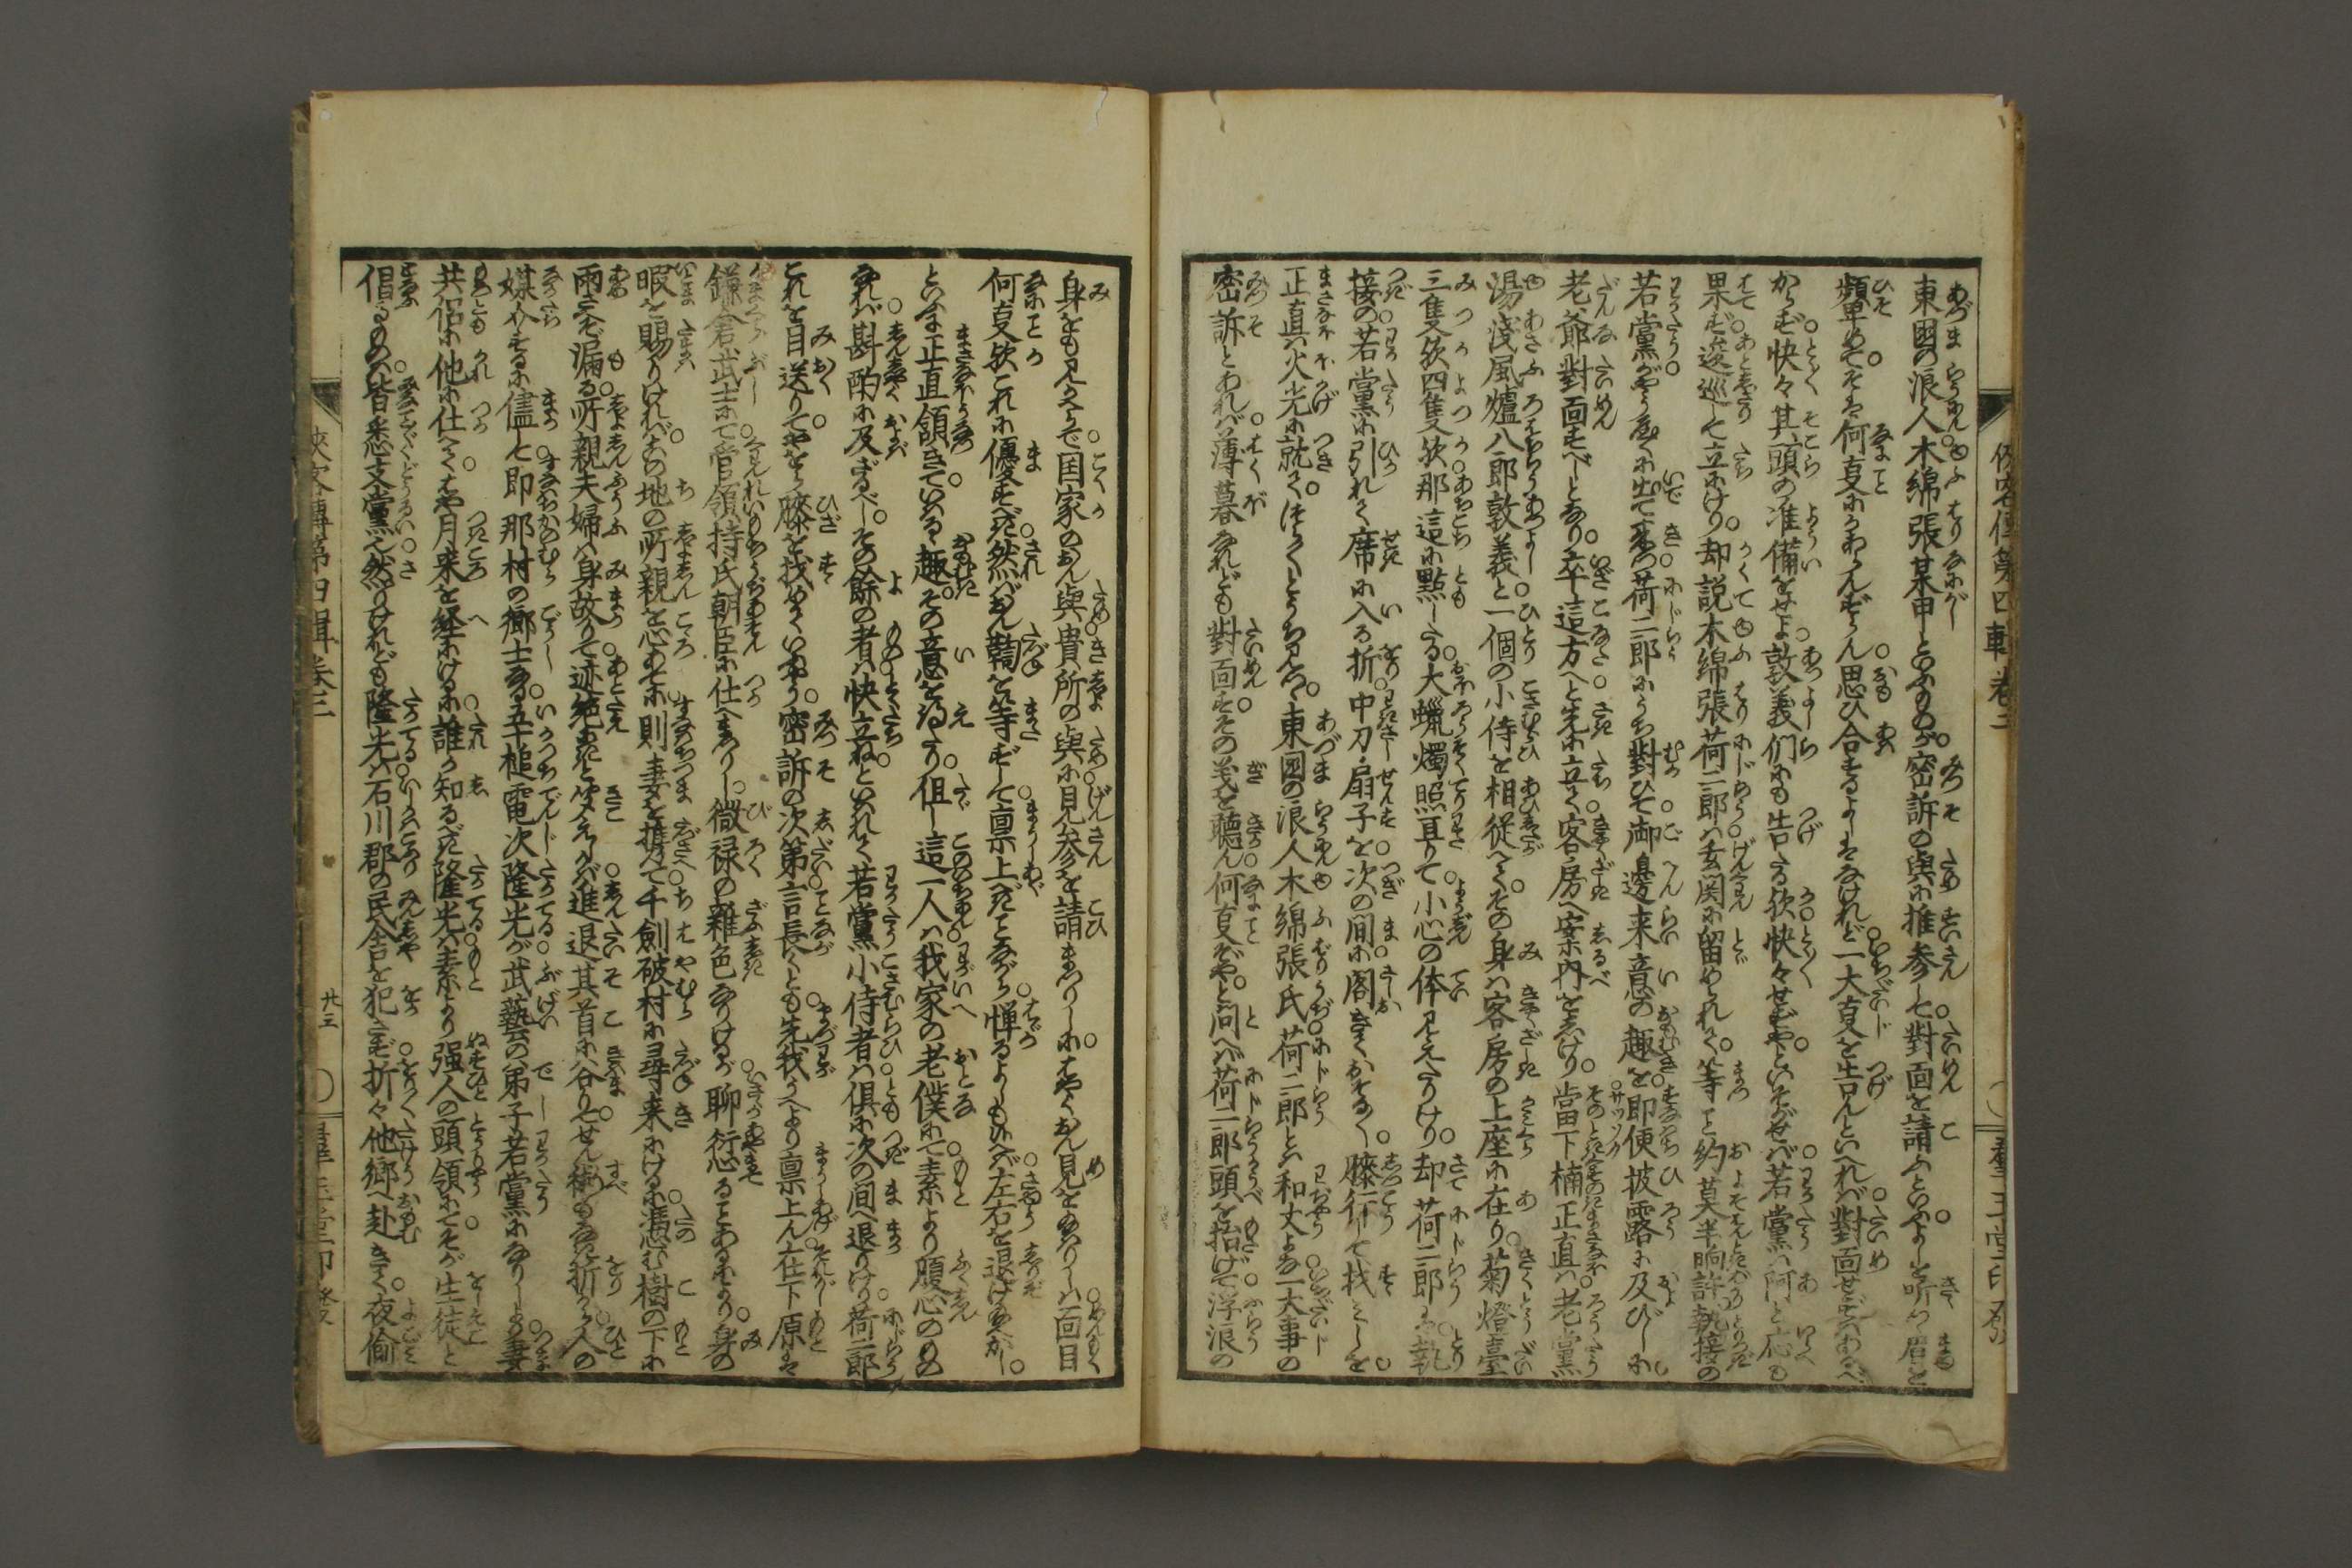 東國の浪人木綿張某甲といふもの。密訴の與に推參して對面を請ふといふよしを听つ眉を
頻單めて。そは何叓にかあらんずらん思ひ合するよしはなけれど一大叓を告んといへれば對面せずはあるべ
からず快々其頭の准備をせよ敦義們にも告たる欤快々せずやといそがせば若黨は阿と応も
果ず逡巡して立にけり。却説木綿張荷二郎は玄関に留められて等こと約莫半晌許執接の
若黨がやうやくに出て来つ荷二郎にうち對ひて御邊来意の趣を即便披露に及びしに
老爺對面すべしとなり。卒這方へと先に立て客房へ案内をしけり。當下楠正直は老黨
湯淺風爐八郎敦義と一個の小侍を相從へて。その身は客房の上座に在り。菊燈臺
三隻欤四隻欤那這に點したる。大蠟燭照耳りて。小心の体見えたりけり。却荷二郎は執
接の若黨に引れて席に入る折中刀扇子を次の間に閣きておそるおそる膝行して找みしを
正直火光に就て。つくづくとうち見つ。東國の浪人木綿張氏荷二郎とは和丈よな一大事の
密訴とあれば。薄暮なれども對面す。その義を聽ん何叓ぞや。と問へば荷二郎頭を抬げて浮浪の
身をも見かへらで国家のおん與貴所の與に見參を請まつりしに。はやくおん見をたまはりしは面目
何叓欤これに優すべき然ばおん鞫を等ずして稟上べきことながら。憚るよしもはべれば左右を退け給へかし。
といふに正直領きて。いはるゝ趣その意を得たり。但し這一人は我家の老僕にて素より腹心のもの
なれば斟酌に及ばざるべし。その餘の者は快立ねといはれて若黨小侍者は倶に次の間へ退りけり。荷二郎
これを目送りて。やをら膝を找めていふやう。密訴の次第言長くとも先我うへより稟上ん在下原は
鎌倉武士にて管領持氏朝臣に仕へまつりし。微祿の雜色なりけるが聊衍愆ることあるにより。身の
暇を賜りければ。この地の所親を心あてに則妻を携て千劍破村に尋来にけるに。憑む樹の下に
雨さへぞ漏る所親夫婦は身故りて迹絶たりと聞えしかば進退其首に谷りて。せん術もなき折から人の
媒介するに儘して即那村の郷士なる五十槌電次隆光が武藝の弟子若黨になりしより。妻
共侶に他に仕へて。はや月来を經にけるに。誰か知るべき隆光は素より强人の頭領にてそが生徒と
倡るもの。皆悉支黨也。然りけれども隆光は石川郡の民舎を犯さず折々他郷へ赴きて。夜偸
俠客傳第四輯卷三
廿三
群玉堂印發